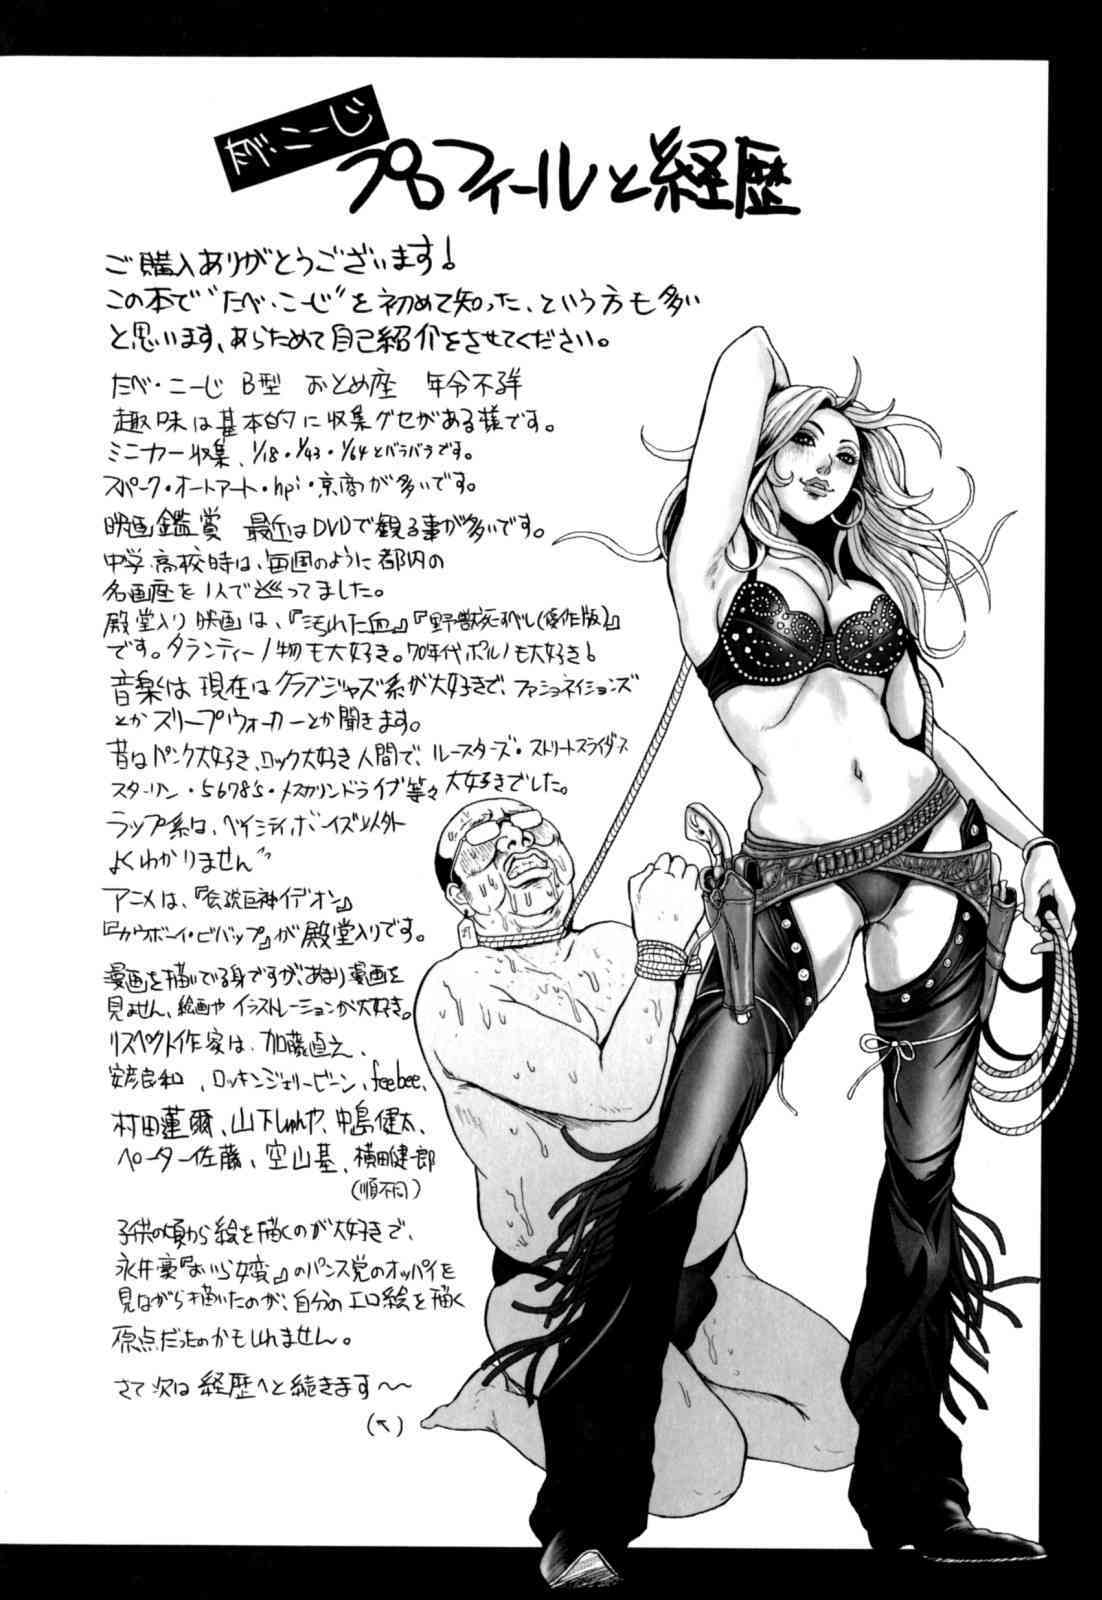 たべ・こーじ
プロフィールと経歴
ご購入ありがとうございます!
この本で"たべ・こーじ"を初めて知った、という方も多い
と思います、あらためて自己紹介をさせてください。
たべ・こーじ B型 おとめ座 年令不詳
趣味は基本的に収集グセがある様です。
ミニカー収集、1/18・1/43・1/64とバラバラです。
スパーク・オートアート・hpi・京商が多いです。
映画鑑賞 最近はDVDで観る事が多いです。
中学・高校時は、毎週のように都内の
名画座を1人で巡ってました。
殿堂入り映画は、『汚れた血』『野獣死すべし(優作版)』
です。タランティーノ物も大好き。70年代ポルノも大好き!
音楽は現在はクラブジャズ系が大好きで、ファショネイションズ
とかスリープウォーカーとか聞きます。
昔はパンク大好き、ロック大好き人間で、ルースターズ・ストリートスライダス
スターリン・5678's・メスカリンドライブ等々大好きでした。
ラップ系は、ベイシティボーイズ以外
よくわかりません"
アニメは、『伝説巨神イデオン』
『カウボーイ・ビバップ』が殿堂入りです。
漫画を描いてる身ですが、あまり漫画を
見ません、絵画やイラストレーションが大好き。
リスペクト作家は、加藤直之、
安彦良和、ロッキンジェリービーン、feebee、
村田蓮爾、山下しゅんや、中島健太、
ペーター佐藤、空山基、横田健一郎
(順不同)
子供の頃から絵を描くのが大好きで、
永井豪『おいら女蛮』のパンス党のオッパイを
見ながら描いたのが、自分のエロ絵を描く
原点だったのかもしれません。
さて次は経歴へと続きます〜〜